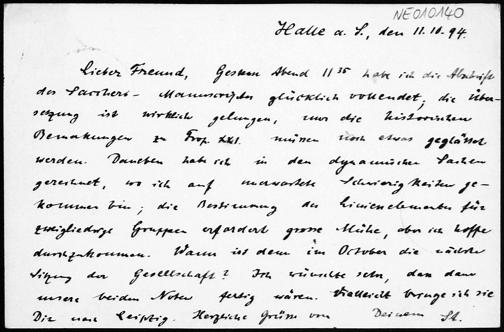 NE010140
Halle a. S., den 11.10.94.
Lieber Freund, Gestern Abend 11 35 habe ich die Abschrift
des Saccheri-Manuscriptes glücklich vollendet; die Über-
setzung ist wirklich gelungen, nur die historischen
Bemerkungen zu Prop. XXI. müssen noch etwas geglättet
werden. Daneben hab ich in den dynamischen Sachen
gerechnet, wo ich auf unerwartete Schwierigkeiten ge-
kommen bin; die Bestimmung des Linienelementes für
zweigliedrige Gruppen erfordert grosse Mühe, aber ich hoffe
durchzukommen. Wann ist denn im October die nächste
Sitzung der Gesellschaft? Ich wünschte sehr, dass dann
unsere beiden Noten fertig wären. Vielleicht bringe ich sie
Dir nach Leipzig. Herzliche Grüsse von Deinem St.